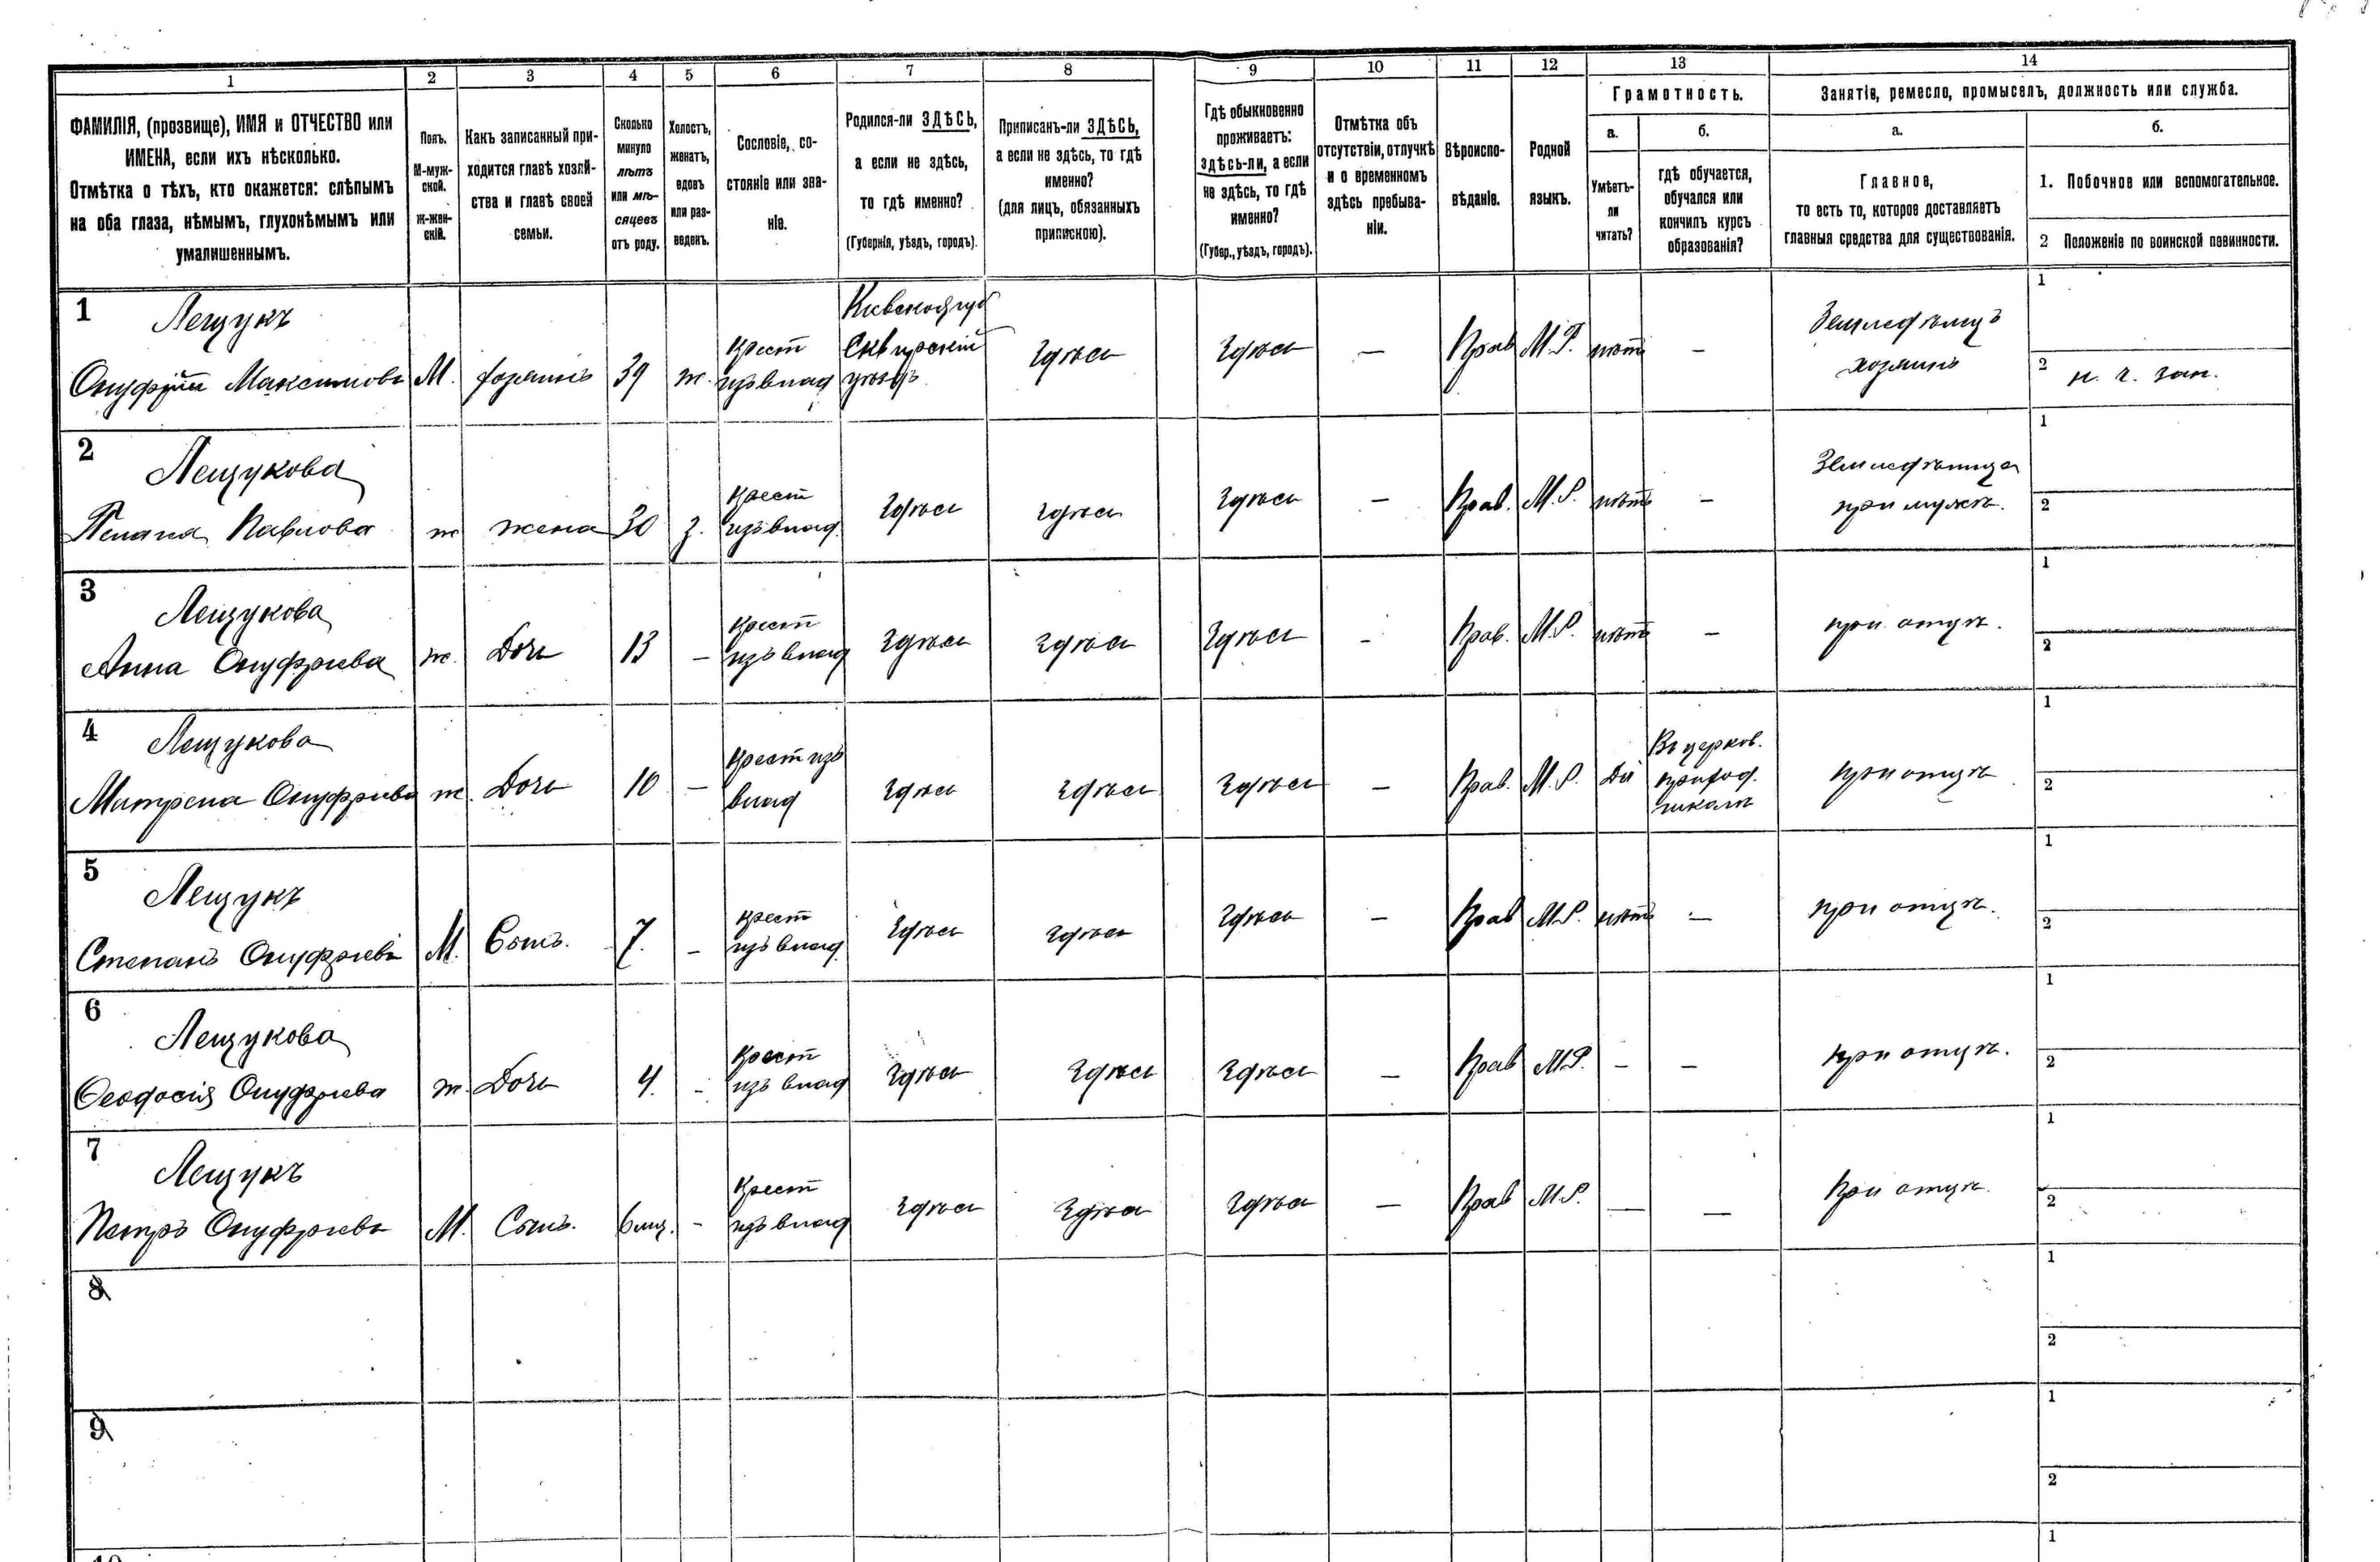 1 2 3 4 5 6 7 8 9 10 11 12 13 14
ФАМИЛІЯ, (прозвище), ИМЯ и ОТЧЕСТВО или
ИМЕНА, если ихъ нѣсколько.
Отмѣтка о тѣхъ, кто окажется: слѣпымъ
на оба глаза, нѣмымъ, глухонѣмымъ или
умалишеннымъ.
Полъ.
М-муж-
ской.
ж-жен-
скій.
Какъ записанный при-
ходится главѣ хозяй-
ства и главѣ своей
семьи.
Сколько
минуло
лѣтъ
или мѣ-
сяцевъ
отъ роду.
Холостъ,
женатъ,
вдовъ
или раз-
веденъ.
Сословіе, со-
стояніе или зва-
ніе.
Родился-ли ЗДѢСЬ,
а если не здѣсь,
то гдѣ именно?
(Губернія, уѣздъ, городъ).
Приписанъ-ли ЗДѢСЬ,
а если не здѣсь, то гдѣ
именно?
(для лицъ, обязанныхъ
припискою).
Гдѣ обыкновенно
проживаетъ:
здѣсь-ли, а если
не здѣсь, то гдѣ
именно?
(Губер., уѣздъ, городъ).
Отмѣтка объ
отсутствіи, отлучкѣ
и о временномъ
здѣсь пребыва-
ніи.
Вѣроиспо-
вѣданіе.
Родной
языкъ.
Грамотность.
а.
Умѣетъ-
ли
читать?
б.
гдѣ обучается,
обучался или
кончилъ курсъ
образованія?
Занятіе, ремесло, промыселъ, должность или служба.
а.
Главное,
то есть то, которое доставляетъ
главныя средства для существованія.
б.
1. Побочное или вспомогательное.
2 Положеніе по воинской повинности.
1
Лещукъ
Онуфрій Максимовъ
М.
хозяинъ
39
ж.
крест
изъ влад
Кіевской губ
Сквирскій
уѣздъ
здѣсь
здѣсь
—
Прав
М.Р.
нѣтъ
—
Земледѣлецъ
хозяинъ
1
2 н. ч. зап.
2
Лещукова
Павлова
ж
жена
30
з.
крест
изъ влад.
здѣсь
здѣсь
здѣсь
—
Прав.
М.Р.
нѣтъ
—
Земледѣлица
при мужѣ.
1
2
3
Лещукова
Анна Онуфріева
ж.
Дочь
13
—
крест
изъ влад
здѣсь
здѣсь
здѣсь
-
Прав.
М.Р.
нѣтъ
—
при отцѣ.
1
2
4
Лещукова
Матрена Онуфріева
ж.
Дочь
10
—
крест изъ
влад
здѣсь
здѣсь
здѣсь
—
Прав.
М.Р.
Да
Въ церков.
приход.
школѣ
при отцѣ
1
2
5
Лещукъ
Степанъ Онуфріевъ
М.
Сынъ.
7.
-
крест
изъ влад.
здѣсь
здѣсь
здѣсь
—
Прав
М.Р.
нѣтъ
—
при отцѣ.
1
2
6
Лещукова
Ѳеодосія Онуфріева
ж.
Дочь
4.
-
крест
изъ влад
здѣсь
здѣсь
здѣсь
—
Прав
М.Р.
—
—
при отцѣ.
1
2
7
Лещукъ
Петръ Онуфріевъ
М.
Сынъ.
6 мѣс.
-
крест
изъ влад
здѣсь
здѣсь
здѣсь
—
Прав
М.Р.
—
—
При отцѣ.
1
2
8
1
2
9
1
2
1